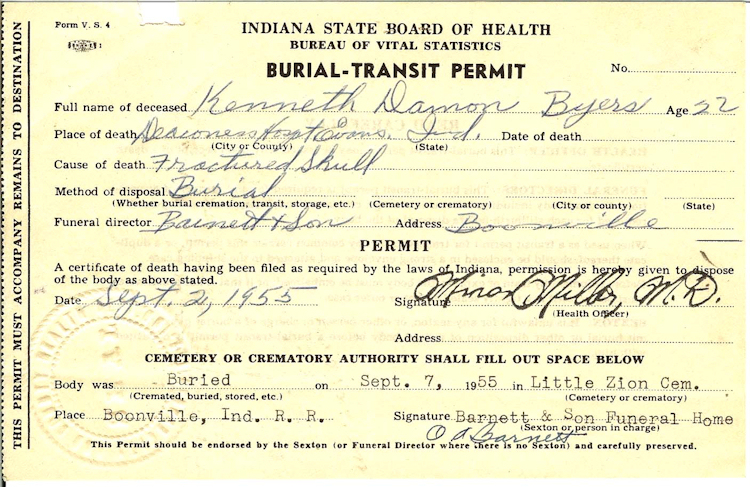 Form V. S. 4
INDIANA STATE BOARD OF HEALTH
BUREAU OF VITAL STATISTICS
BURIAL-TRANSIT PERMIT
No.
Full name of deceased Kenneth Damon Byers Age 22
Place of death Deaconess Hosp Evans. Ind. Date of death
(City or County) (State)
Cause of death Fractured Skull
Method of disposal Burial
(Whether burial cremation, transit, storage, etc.) (Cemetery or crematory) (City or county) (State)
Funeral director Barnett & Son Address Boonville
PERMIT
A certificate of death having been filed as required by the laws of Indiana, permission is hereby given to dispose
of the body as above stated.
Date Sept. 2, 1955 Signature Miller, M.D.
(Health Officer)
Address
CEMETERY OR CREMATORY AUTHORITY SHALL FILL OUT SPACE BELOW
Body was Buried on Sept. 7, 1955 in Little Zion Cem.
(Cremated, buried, stored, etc.) (Cemetery or crematory)
Place Boonville, Ind. R. R. Signature Barnett & Son Funeral Home
(Sexton or person in charge)
O A Barnett
This Permit should be endorsed by the Sexton (or Funeral Director where there is no Sexton) and carefully preserved.
THIS PERMIT MUST ACCOMPANY REMAINS TO DESTINATION